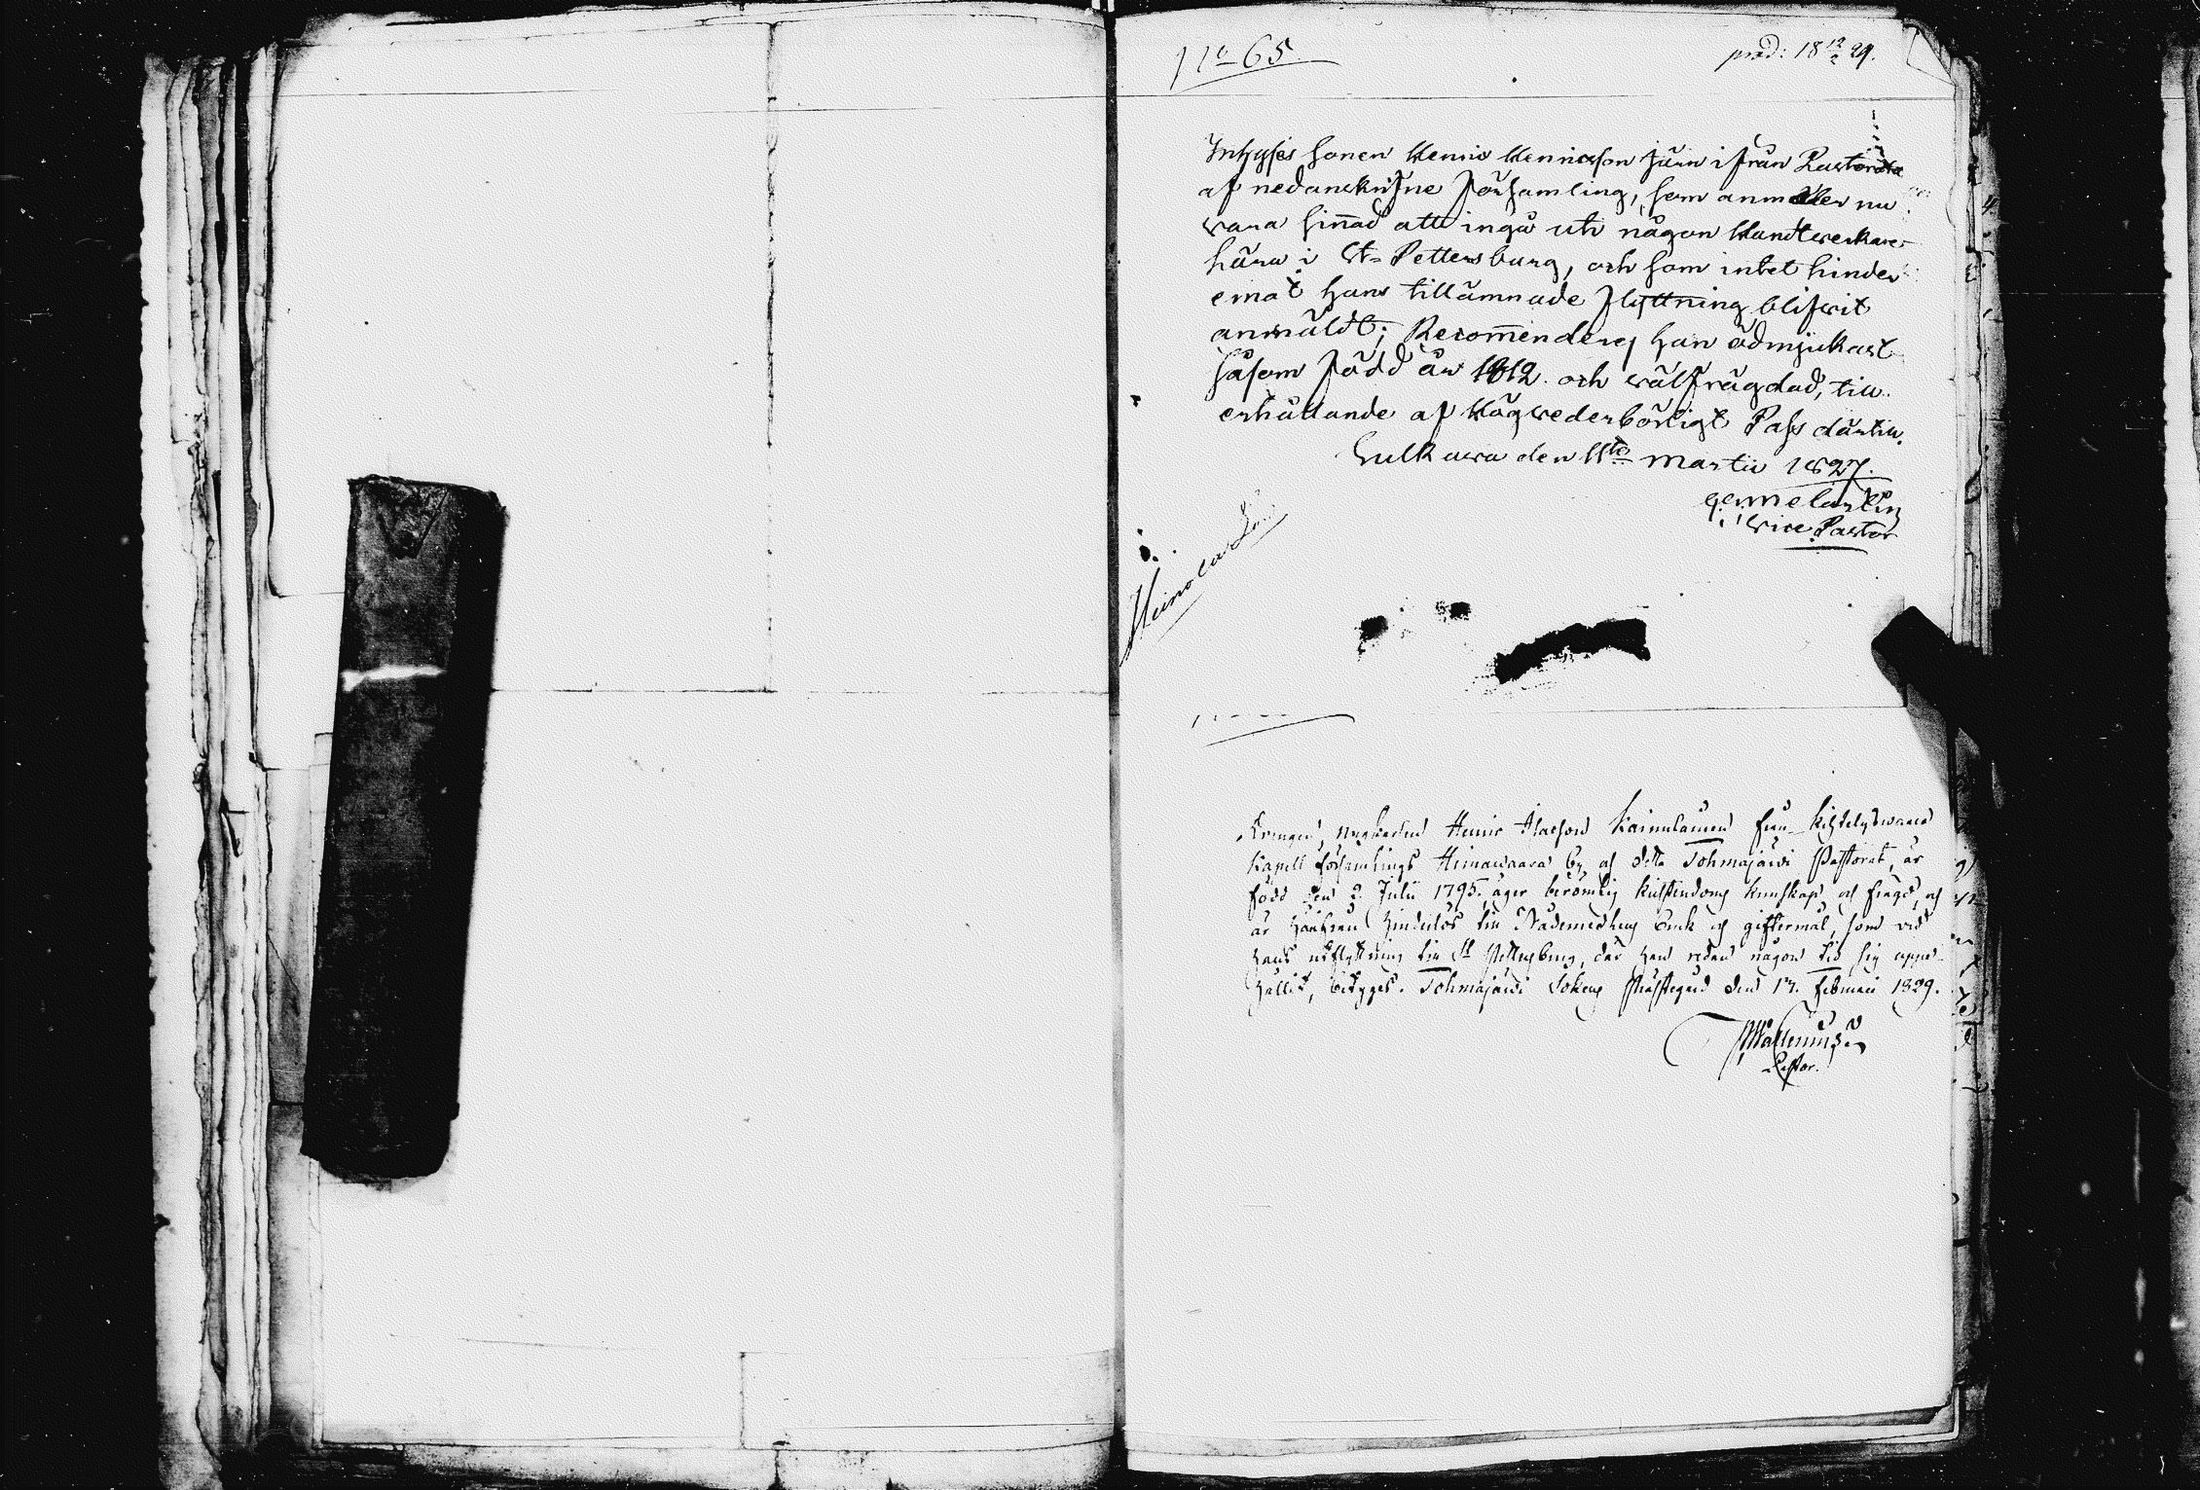 No 65.
prod: 18 12/2 29.
Inhyses sonen Henric Henricsson Järn ifrån
af nedanskrifne församling, som anmäler nu
wara sinnad att ingå uti någon Handtverkare
här i St. Pettersburg, och som intet hinder
emot hans tillämnade flyttning blifwit
anmäldt; Recommenderas han ödmjukast
såsom född år 1812. och wälfrägdad, till
erhållande af Högwederbörligt Pass därtill.
Sulkawa den 11te Martii 1827.
Vice Pastor
Drängen, Henric Olofson Kainulainen från Kihtelyswaara
Kapell församlings Heinäwaara by af detta Tohmajärwi Pastorat, är
född den 2. Julii 1795. äger berömlig kristendoms kunskap och frägd, och
är härifrån hinderlös till Nådemedlens bruk och giftermål, som wid
hans utflyttning till St Pettersburg, där han redan någon tid sig uppe-
hållit, betygas. Tohmajärwi Sokens Prästegård den 17. Februarii 1829.
Wallenius
Pastor.